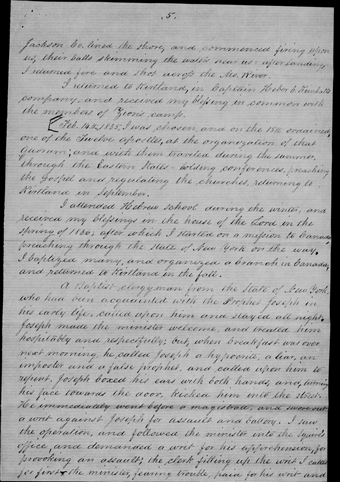 .5.
Jackson Co. lined the shore, and commenced firing upon
us, their balls skimming the water near us: after landing
I returned fire and shot across the Mo. River.
I returned to Kirtland, in Captain Heber C. Kimball's
company, and received my blessing in common with
the members of Zion's camp.
[Feb. 14th, 1835, I was chosen, and on the 15th ordained,
one of the Twelve apostles, at the organization of that
Quorum; and with them traveled during the summer,
through the Eastern States – holding conferences, preaching
the Gospel and regulating the churches, returning to
Kirtland in September.
I attended Hebrew school during the winter, and
received my blessings in the house of the Lord in the
spring of 1836, after which I started on a mission to Canada,
preaching through the State of New York on the way.
I baptized many, and organized a branch in Canada,
and returned to Kirtland in the fall.
A Baptist clergyman from the State of New York,
who had been acquainted with the Prophet Joseph in
his early life, called upon him and stayed all night.
Joseph made the minister welcome, and treated him
hospitably and respectfully; but, when breakfast was over
next morning, he called Joseph a hypocrite, a liar, an
imposter and a false prophet, and called upon him to
repent. Joseph boxed his ears with both hands, and, turning
his face towards the door, kicked him into the street.
He immediately went before a magistrate, and swore out
a writ against Joseph for assault and battery. I saw
the operation, and followed the minister into the Squire's
office, and demanded a writ for his apprehension, for
provoking an assault; the clerk filling up the writ I called
for first. The minister, fearing trouble, paid for his writ and